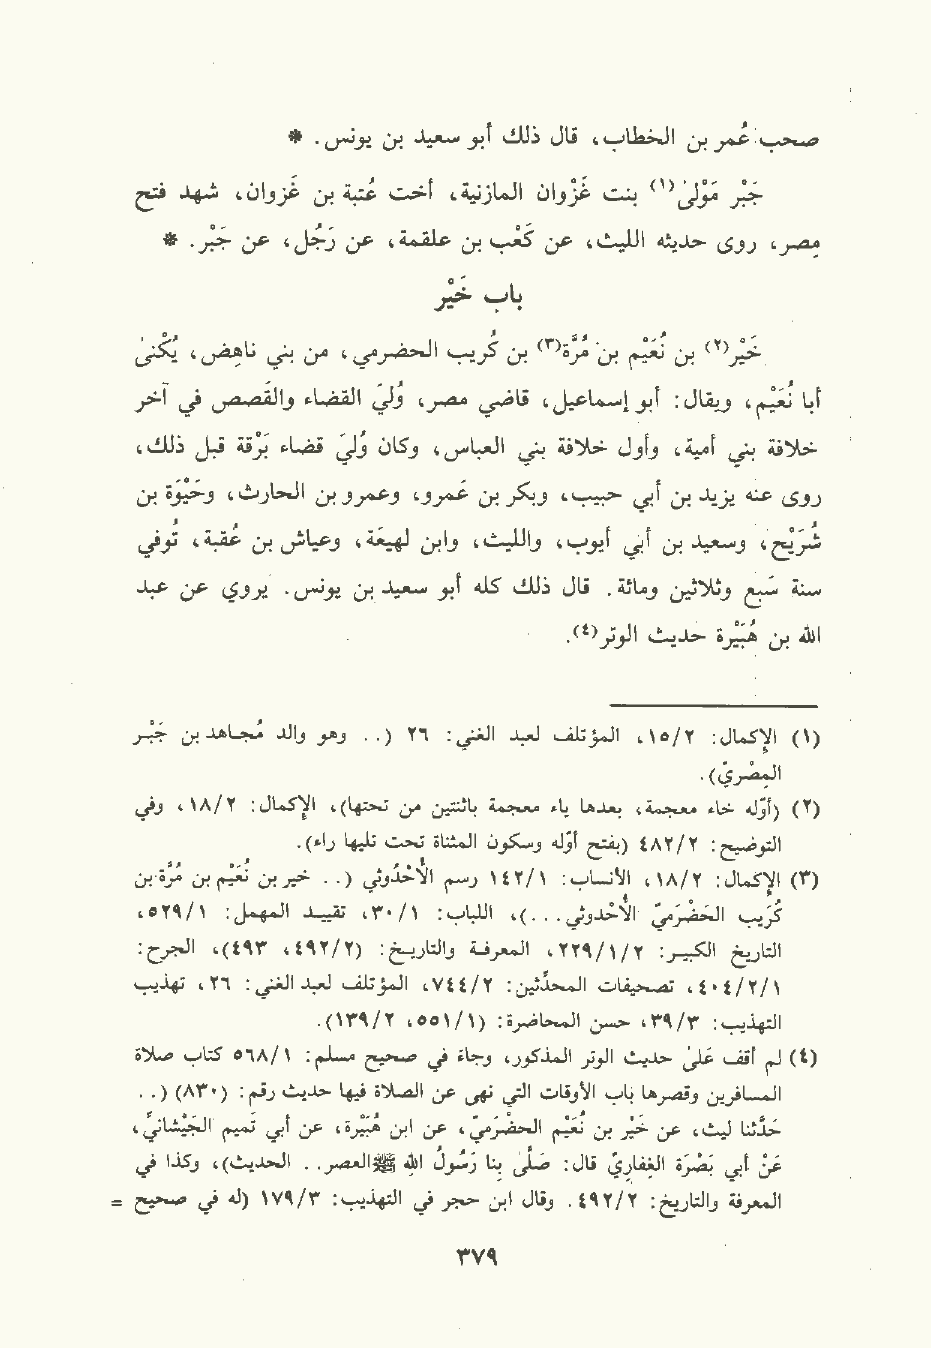 صحب عُمر بن الخطاب، قال ذلك أبو سعيد بن يونس. *
جَبْر مَوْلىٰ(١) بنت غَزْوان المازنية، أخت عُتبة بن غَزْوان، شهد فتح
مِصر، روى حديثه الليث، عن كَعْب بن علقمة، عن رَجُل، عن جَبْر. *
باب خَيْر
خَيْر(٢) بن نُعَيْم بن مُرَّة(٣) بن كُريب الحضرمي، من بني ناهِض، يُكْنىٰ
أبا نُعَيْم، ويقال: أبو إسماعيل، قاضي مصر، وُليَ القضاء والقَصص في آخر
خلافة بني أمية، وأول خلافة بني العباس، وكان وُليَ قضاء بَرْقة قبل ذلك،
روى عنه يزيد بن أبي حبيب، وبكر بن عَمرو، وعمرو بن الحارث، وحَيْوَة بن
شُرَيْح، وسعيد بن أبي أيوب، والليث، وابن لهيعَة، وعياش بن عُقبة، تُوفي
سنة سَبع وثلاثين ومائة. قال ذلك كله أبو سعيد بن يونس. يروي عن عبد
الله بن هُبَيْرة حديث الوتر(٤).
(١) الإكمال: ١٥/٢، المؤتلف لعبد الغني: ٢٦ (.. وهو والد مُجاهد بن جَبْر
المِصْريّ).
(٢) (أوّله خاء معجمة، بعدها ياء معجمة باثنتين من تحتها)، الإكمال: ١٨/٢، وفي
التوضيح: ٤٨٢/٢ (بفتح أوّله وسكون المثناة تحت تليها راء).
(٣) الإكمال: ١٨/٢، الأنساب: ١٤٢/١ رسم الأُحْدُوثي (.. خير بن نُعَيْم بن مُرَّة بن
كُرَيب الحَضْرَميّ الأُحْدوثي...)، اللباب: ٣٠/١، تقييد المهمل: ٥٢٩/١،
التاريخ الكبير: ٢٢٩/١/٢، المعرفة والتاريخ: (٤٩٢/٢، ٤٩٣)، الجرح:
٤٠٤/٢/١، تصحيفات المحدثين: ٧٤٤/٢، المؤتلف لعبد الغني: ٢٦، تهذيب
التهذيب: ٣٩/٣، حسن المحاضرة: (٥٥١/١، ١٣٩/٢).
(٤) لم أقف علىٰ حديث الوتر المذكور، وجاء في صحيح مسلم: ٥٦٨/١ كتاب صلاة
المسافرين وقصرها باب الأوقات التي نهي عن الصلاة فيها حديث رقم: (٨٣٠) (..
حَدَّثنا ليث، عن خَيْر بن نُعَيْم الحَضْرَميّ، عن ابن هُبَيْرة، عن أبي تَميم الجَيْشانيّ،
عَنْ أبي بَصْرَة الغِفاريّ قال: صَلّىٰ بنا رَسُولُ اللهِ ﷺ العصر.. الحديث)، وكذا في
المعرفة والتاريخ: ٤٩٢/٢. وقال ابن حجر في التهذيب: ١٧٩/٣ (له في صحيح =
٣٧٩